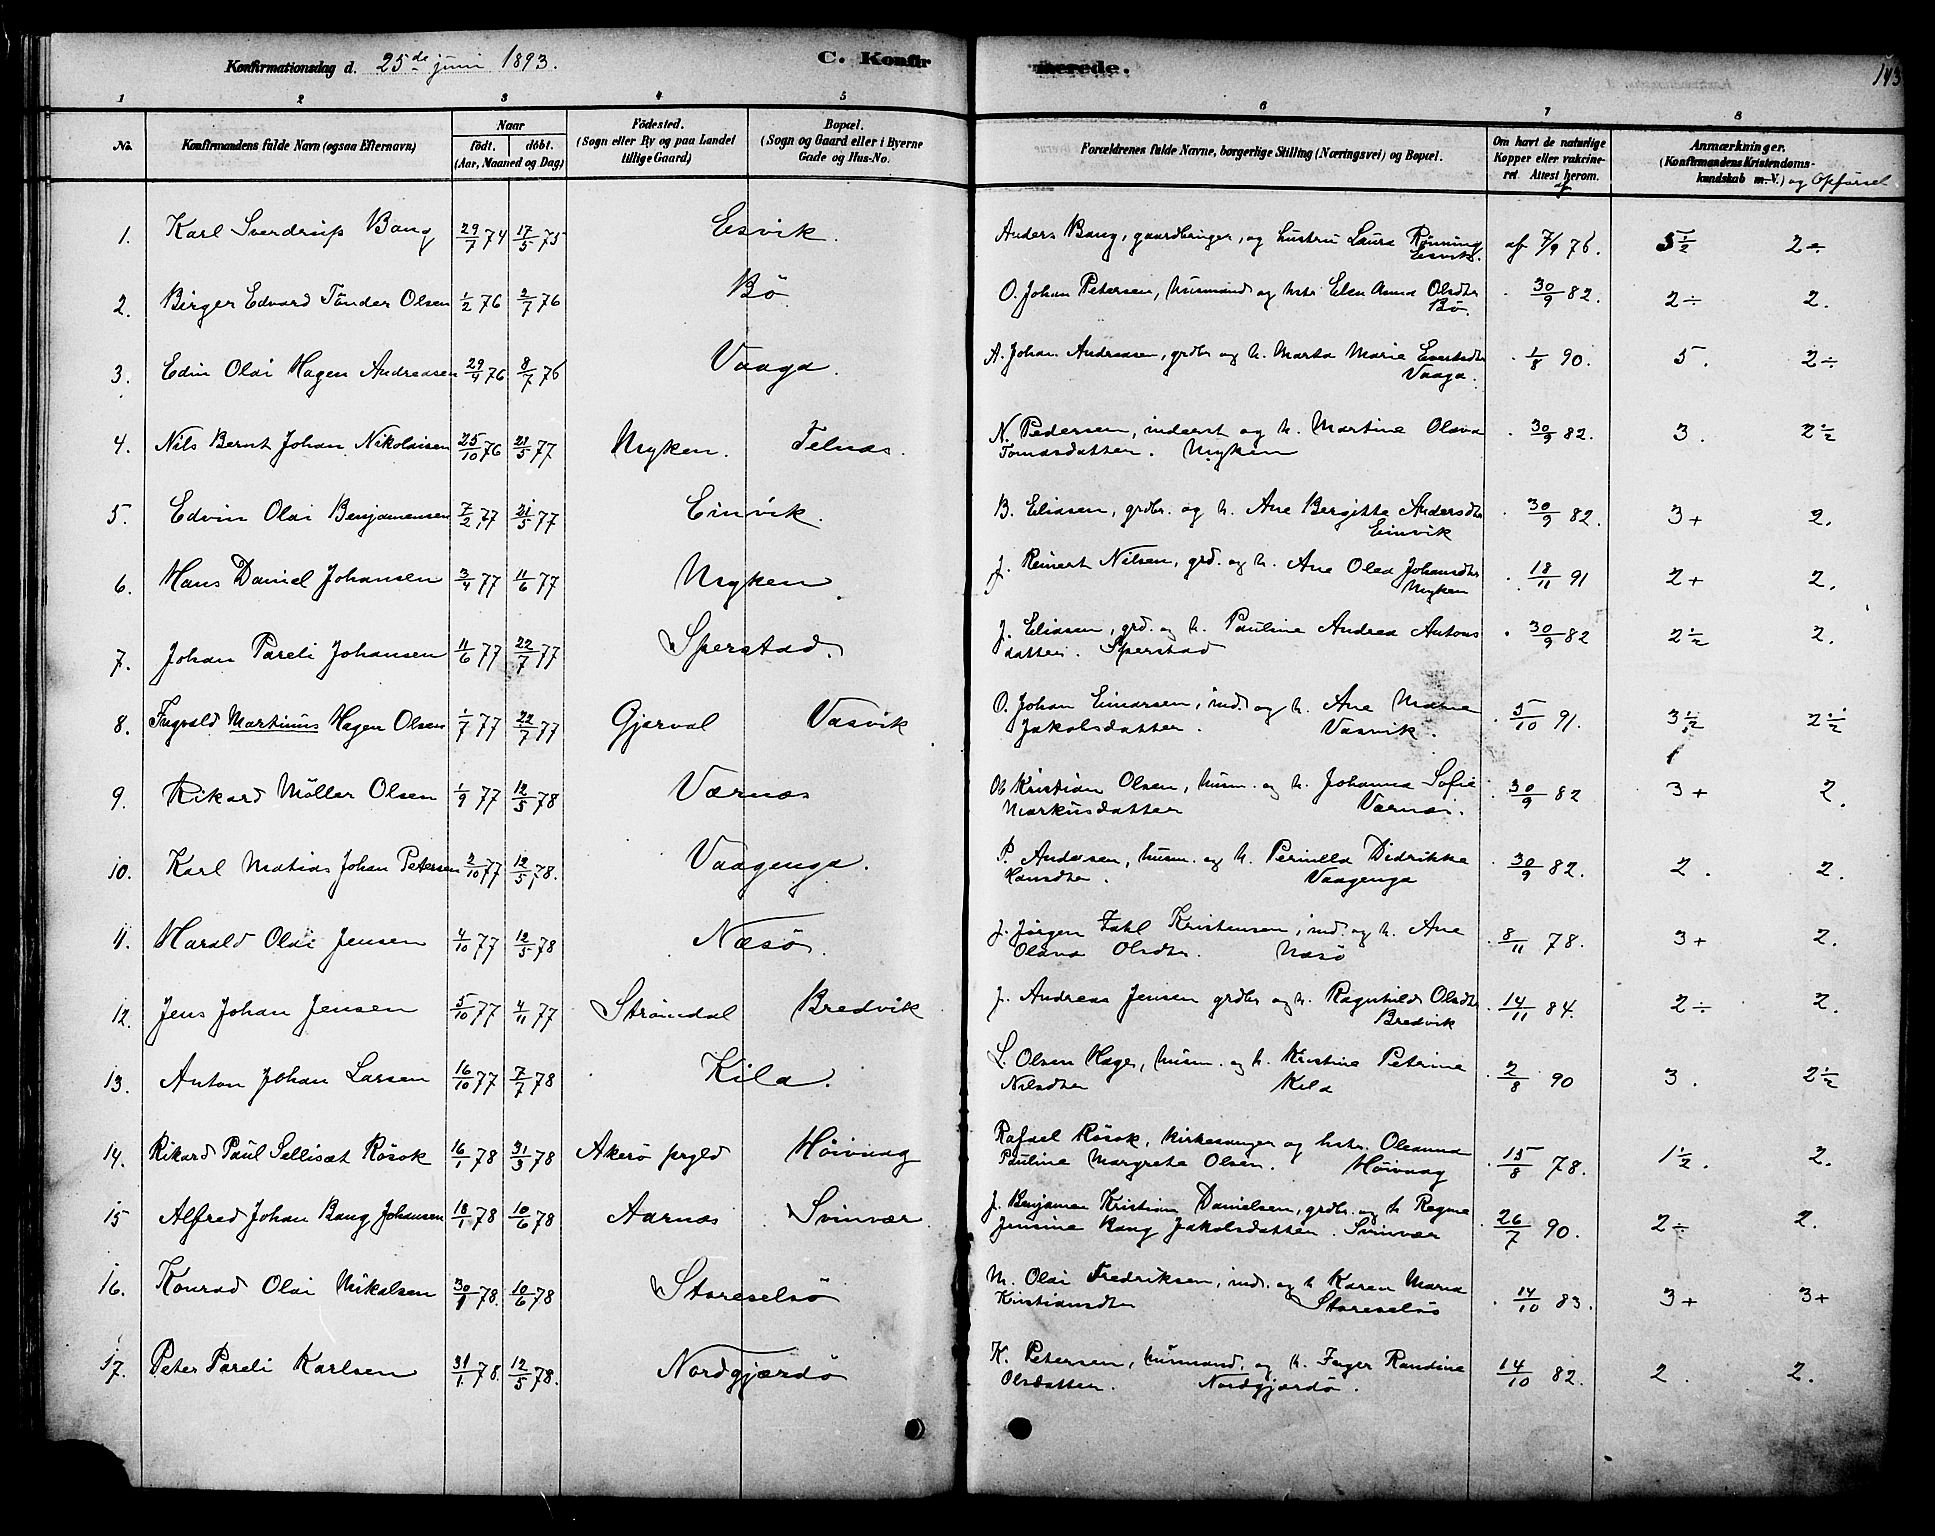 Konfirmationsdag d. 25de juni 1893. C. Konfirmerede. 143
1 2 3 4 5 6 7 8
No. Konfirmandens fulde Navn (ogsaa Efternavn) Naar født. døbt. (Aar, Maaned og Dag) Fødested. (Sogn eller By og paa Landet tillige Gaard) Bopæl. (Sogn og Gaard eller i Byerne Gade og Hus-No. Forældrenes fulde Navne, borgerlige Stilling (Næringsvei) og Bopæl. Om havt de naturlige Kopper eller vakcineret. Attest herom. af Anmærkninger. (Konfirmandens Kristendomskundskab m. V.) og Opførsel
1. Karl Sverdrup Bang 29/7 74 17/5 75 Esvik. Anders Bang, gaardbruger, og hustru Laura Rønning af 7/9 76. 5 1/2 2÷
Esvik.
2. Birger Edvard Tønder Olsen 1/2 76 2/7 76 Bö O. Johan Petersen, husmand og hstr Elen Anna Olsdtr 30/9 82. 2÷ 2.
Bø.
3. Edin Olai Hagen Andreasen 29/4 76 8/7 76 Vaaga. A. Johan Andreasen, grdbr og h. Marta Marie Evertsdtr 1/8 90. 5. 2÷
Vaaga.
4. Nils Bernt Johan Nikolaisen 25/10 76 21/5 77 Myken. Telnæs. N. Pedersen, inderst og h. Martine Olava 30/9 82. 3. 2 1/2
Tomasdatter. Myken
5. Edvin Olai Benjaminsen 7/2 77 21/5 77 Einvik. B. Eliasen, grdbr. og h. Ane Bergitte Andersdtr 30/9 82. 3+ 2.
Einvik
6. Hans Daniel Johansen 3/4 77 11/6 77 Myken. J. Reinert Nilsen, grd. og h. Ane Olea Johansdtr 18/11 91 2+ 2.
Myken
7. Johan Pareli Johansen 11/6 77 22/7 77 Sperstad. J. Eliasen, grd. og h. Pauline Andrea Antons 30/9 82 2 1/2 2.
datter. Sperstad
8. Ingvald Martinus Hagen Olsen 1/7 77 22/7 77 Gjerval Vasvik O. Johan Einarsen, ind. og h. Ane Marie 5/10 91. 3 1/2 2 1/2
Jakobsdatter. Vasvik.
9. Rikard Möller Olsen 1/9 77 12/5 78 Værnæs Ol. Kristian Olsen, husm. og h. Johanna Sofie 30/9 82 3+ 2.
Markusdatter Værnæs.
10. Karl Matias Johan Petersen 2/10 77 12/5 78. Vaagenga. P. Andersen, husm. og h. Pernilla Didrikke 30/9 82. 2. 2.
Hansdtr. Vaagenga
11. Harald Olai Jensen 4/10 77 12/5 78 Næsö. J. Jørgen Zahl Kristensen, ind. og h. Ane 8/11 78. 3+ 2.
Olava Olsdtr. Næsö
12. Jens Johan Jensen 5/10 77 4/11 77 Strømdal Bredvik J. Andreas Jensen grdbr og h. Ragnhild Olsdtr 14/11 84. 2÷ 2.
Bredvik
13. Anton Johan Larsen 16/10 77 7/7 78 Kila. L. Olsen Hage, husm. og h. Kristine Petrine 2/8 90 3. 2 1/2
Nilsdtr Kila
14. Rikard Paul Sellisæt Røsok 16/1 78 31/3 78 Akerø prgld Høivaag Rafael Røsok, kirkesanger og hstr. Oleanna 15/8 78. 1 1/2. 2.
Pauline Margrete Olsen. Høivaag
15 Alfred Johan Bang Johansen 18/1 78 10/6 78 Aarnæs Svinvær. J. Benjamen Kristian Danielsen, grdbr. og h Regine 26/7 90. 2÷ 2.
Jensine Bang Jakobsdatter. Svinvær
16. Konrad Olai Mikalsen 30/1 78. 10/6 78 Storeselsö M. Olai Fredriksen, ind. og h Karen Maria 14/10 83. 3+ 3+
Kristiansdtr Storeselsö
17. Peter Pareli Karlsen 31/1 78. 12/5 78. Nordgjærdö K. Petersen, husmand, og h. Inger Randine 14/10 82. 2. 2.
Olsdatter. Nordgjærdö.